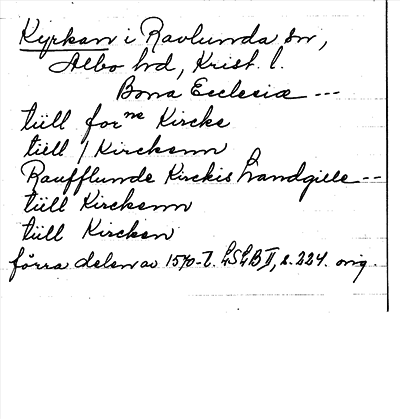 Kyrkan i Ravlunda sn,
Albo hd, Krist. l.
Bona Ecclesiæ ---
tiill for^ne Kircke
tiell / Kirckenn
Raufflunde Kirckis Landgille --
tiill Kirckenn
tiill Kircken
förra delen av 1570-t. LSLB II, s. 224. orig.